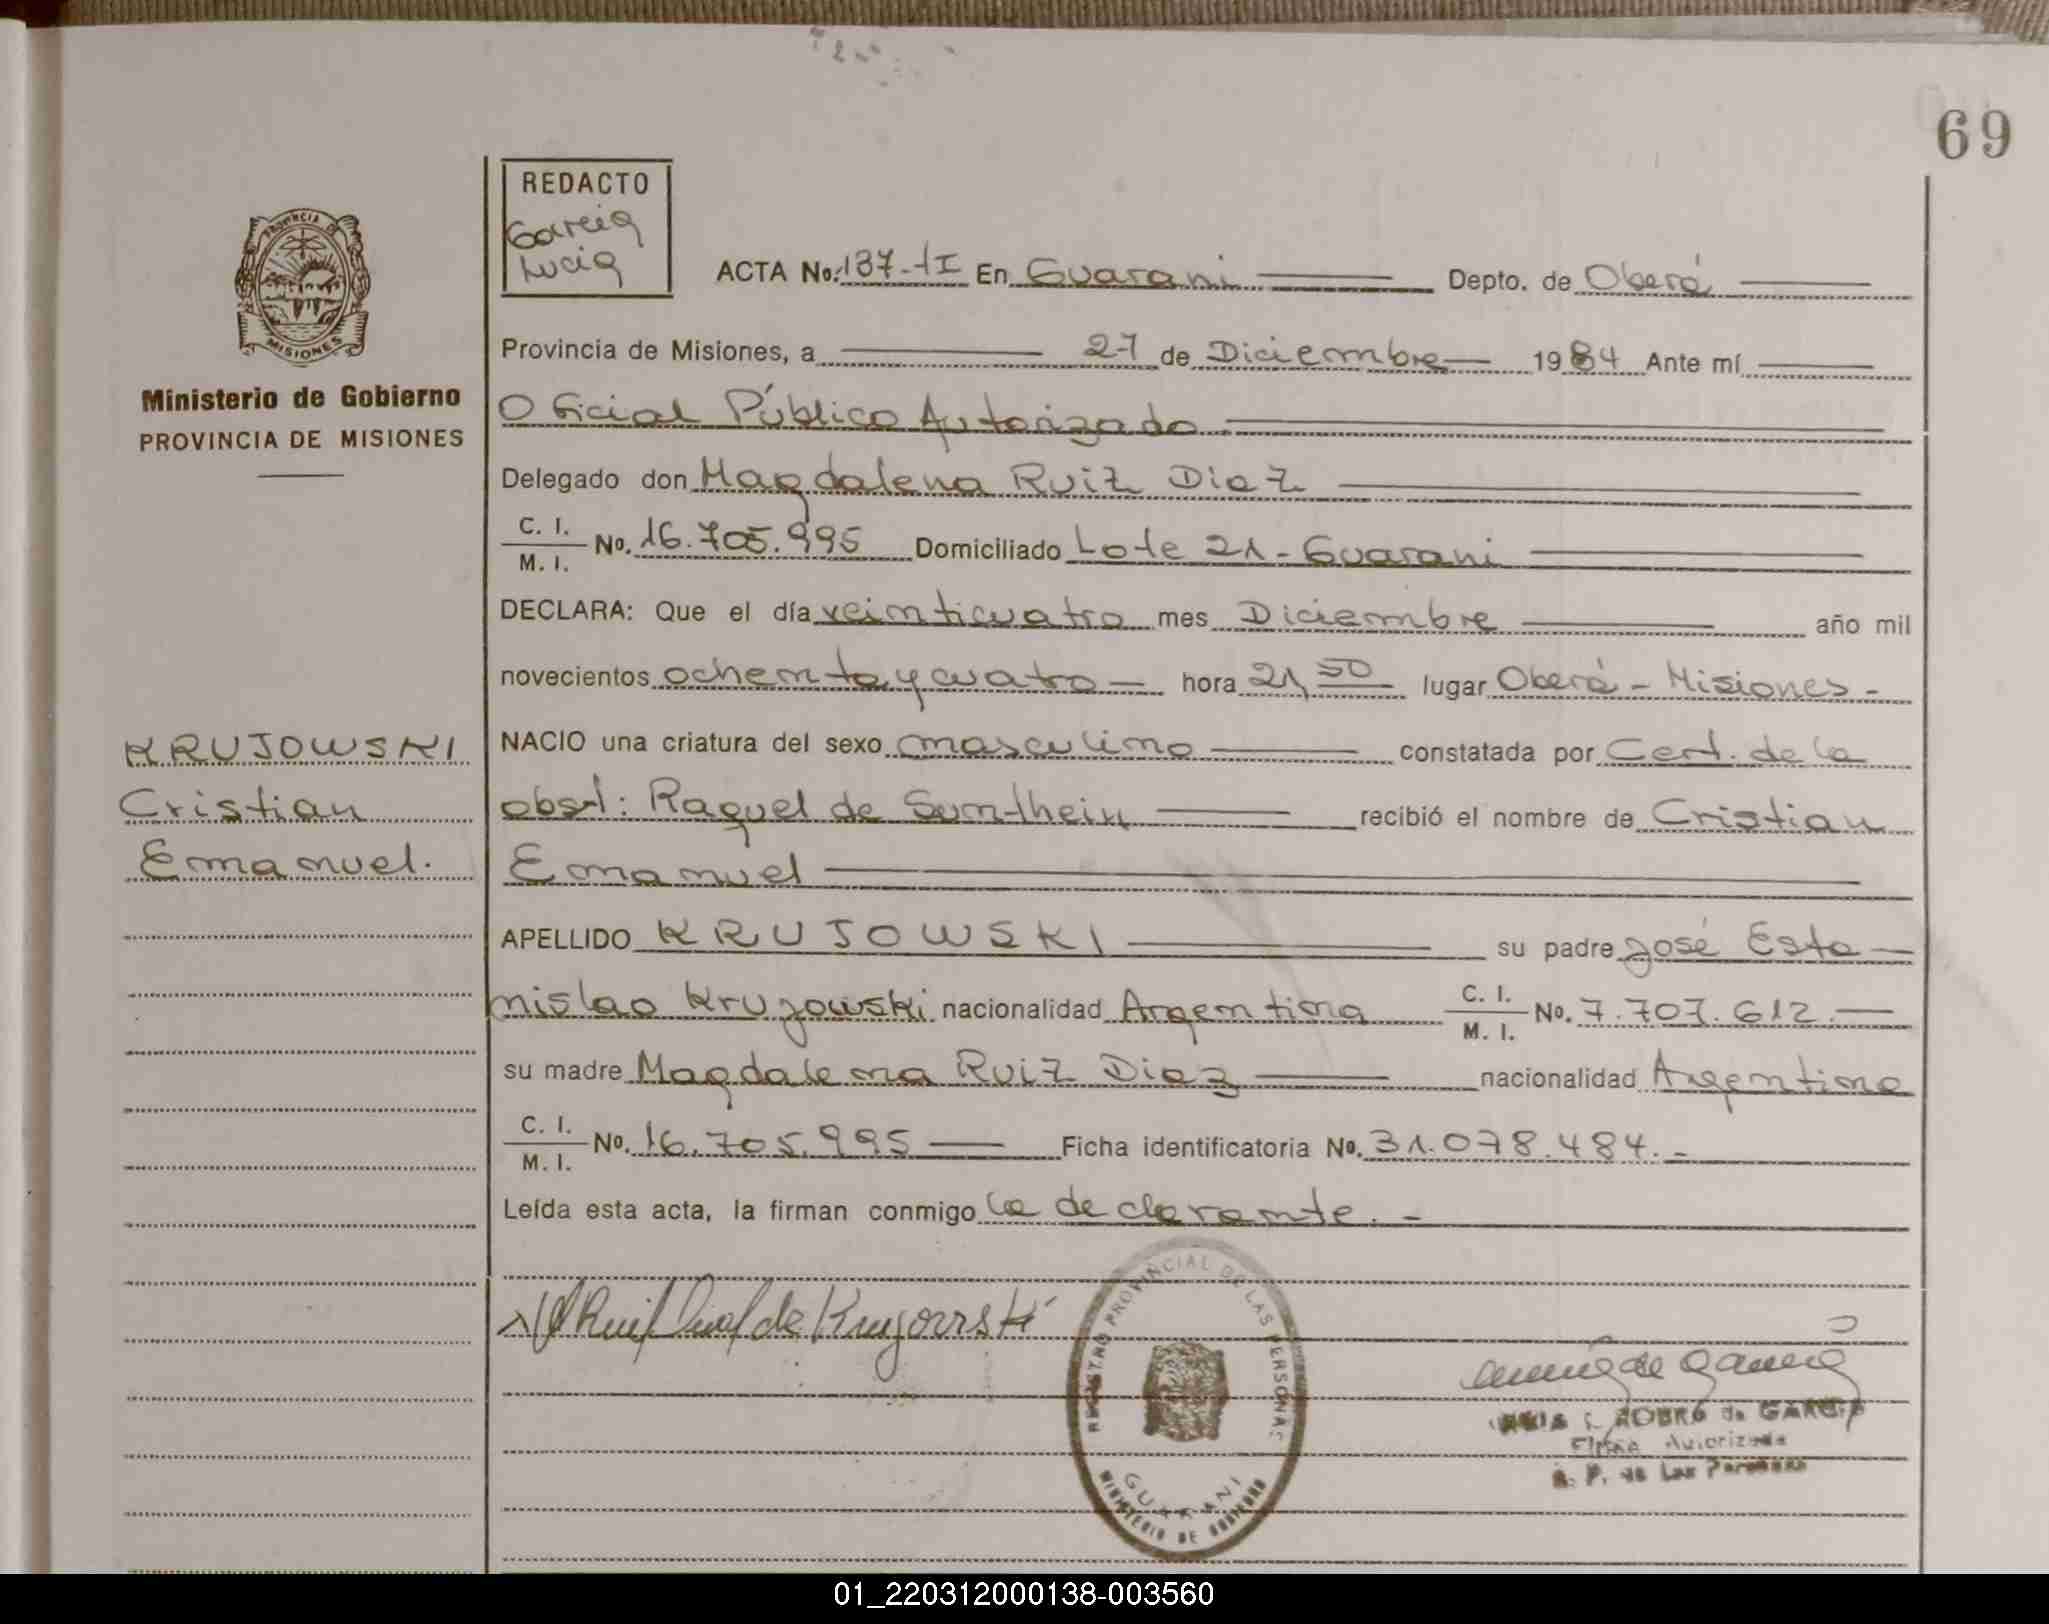 69
REDACTO
Garcia
Lucia
PROVINCIA DE
MISIONES
Ministerio de Gobierno
PROVINCIA DE MISIONES
ACTA No. 137-tI En Guarani Depto. de Oberá
Provincia de Misiones, a 27 de Diciembre 1984 Ante mí
Oficial Público Autorizado
Delegado don Magdalena Ruiz Diaz
C. I.
M. I. No. 16.705.995 Domiciliado Lote 21 - Guarani
DECLARA: Que el día veinticuatro mes Diciembre año mil
novecientos ochenta y cuatro hora 21,50 lugar Oberá - Misiones -
NACIO una criatura del sexo masculino constatada por Cert. de la
obst: Raquel de recibió el nombre de Cristian
Emanuel
APELLIDO KRUJOWSKI su padre José Esta
nislao Krujowski nacionalidad Argentina C. I.
M. I. No. 7.707.612.
su madre Magdalena Ruiz Diaz nacionalidad Argentina
C. I.
M. I. No. 16.705.995 Ficha identificatoria No. 31.078.484.-
Leída esta acta, la firman conmigo la declarante.-
KRUJOWSKI
Cristian
Emanuel.
Ruiz Diaz de Krujowski
REGISTRO PROVINCIAL DE LAS PERSONAS
GUARANI
MINISTERIO DE GOBIERNO
de GARCIA
Firma Autorizada
R. P. de Las Personas
01_220312000138-003560